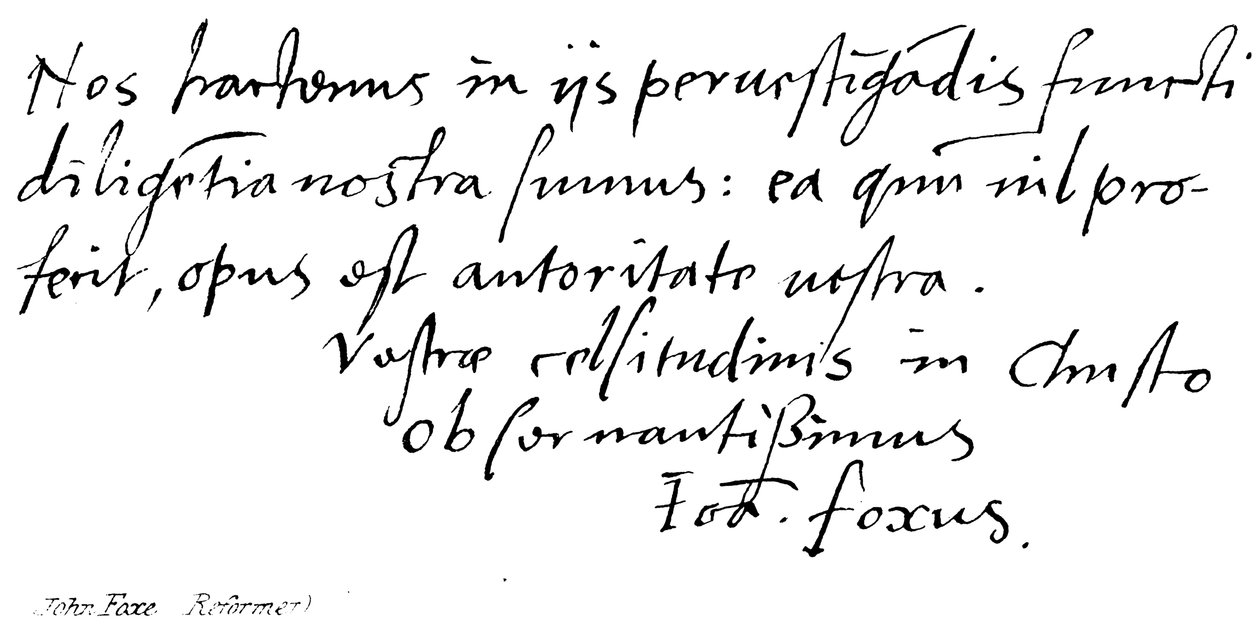 Nos hactenus in ijs peruestigādis functi
diligētia nostra sumus: ea qum̄ nil pro-
ferit, opus est autoritate uestra.
Vestræ celsitudinis in Christo
Obseruantißimus
Ioā. foxus.
John Foxe Reformer)